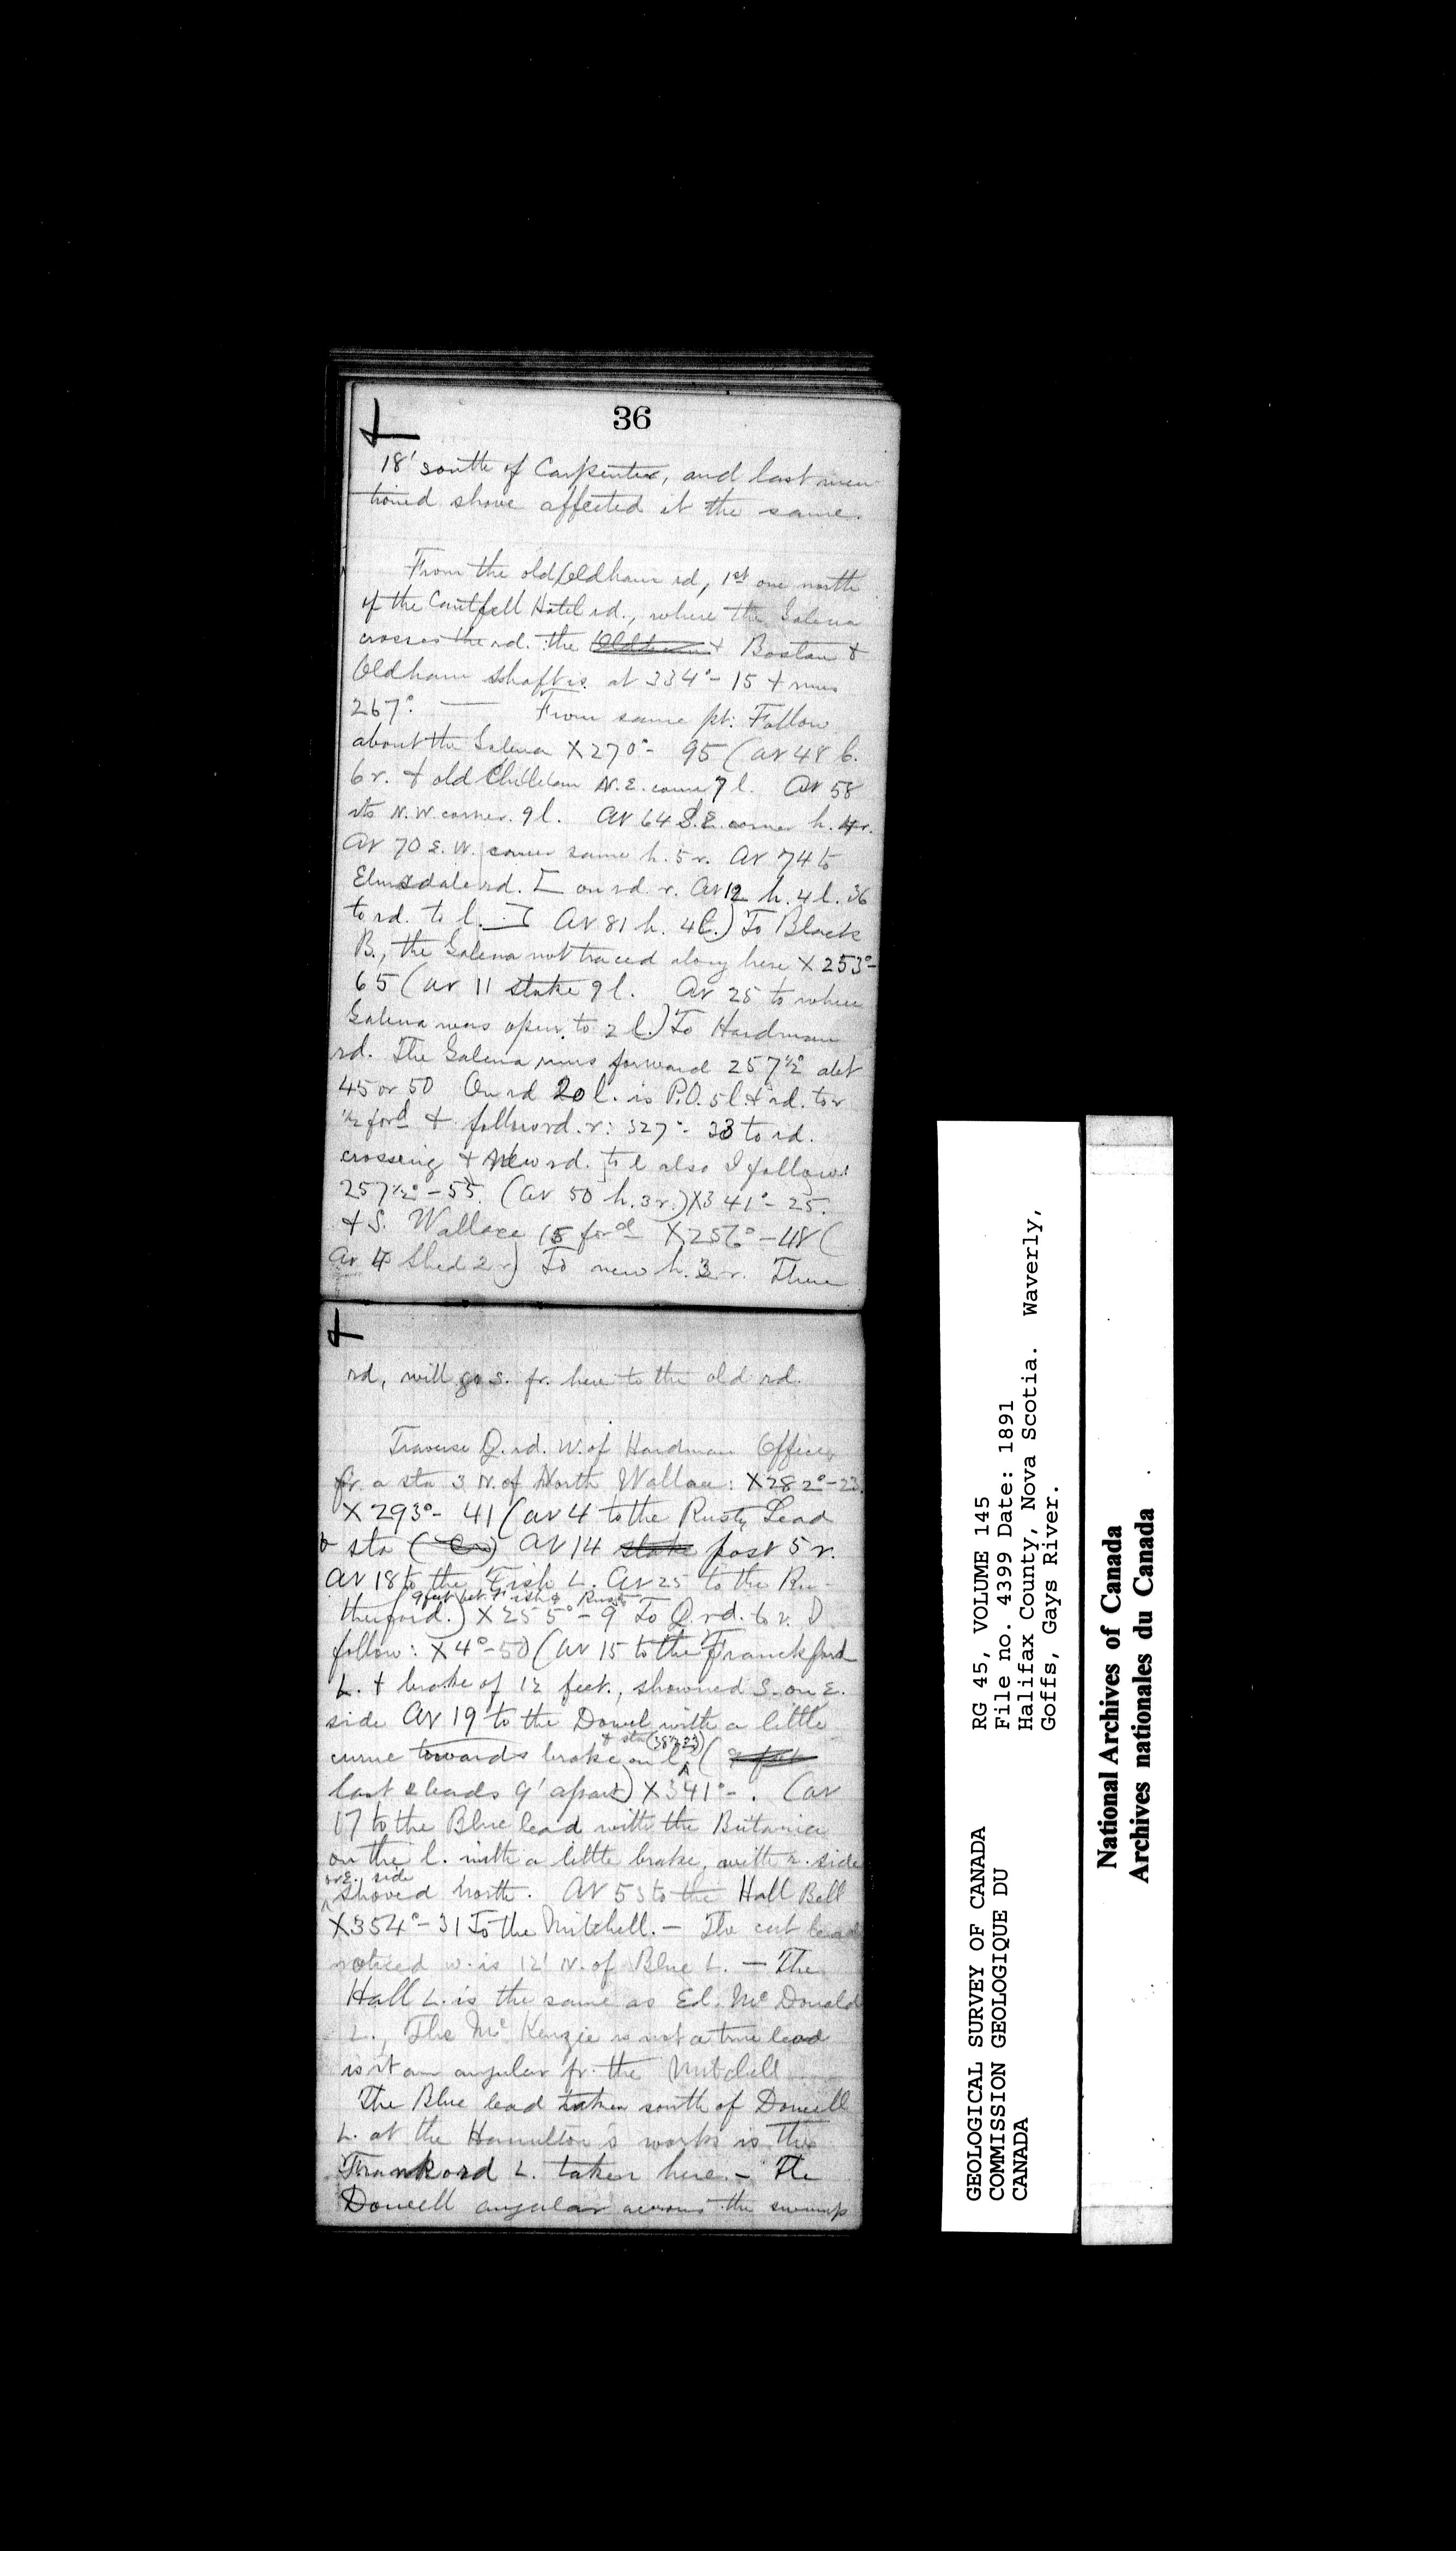 36
18' south of Carpenter, and last men
tioned shove affected it the same.
From the old Oldham rd, 1st one north
of the Hotel rd., where the Galena
crosses the rd. the Oldham + Boston &
Oldham shaft is at 334°- 15 + runs
267°. — From same pt: Follow
about the Galena X 270°- 95 (av 48 b.
6 r. + old N.E. corner 7 l. av 58
its N.W. corner. 9 l. av 64 S.E. corner h. 4 r.
av 70 S.W. corner same h. 5 r. av 74 to
Elmsdale rd. [ on rd. r. av 12 h. 4 l. 36
to rd. to l. ] av 81 h. 4 l.) To Black
B., the Galena not traced along here X 253°-
65 (av 11 stake 9 l. av 25 to where
Galena was open to 2 l.) To Hardman
rd. The Galena runs forward 257½° abt
45 or 50 On rd 20 l. is P.O. 5 l. + rd. to r
½ ford & follow rd. r: 327°- 33 to rd.
crossing + New rd. to l also I follow:
257½°-55. (av 50 h. 3 r.) X 341°- 25.
+ S. Wallace 15 ford X 256°-48 (
av 4 shed 2 r) To new h. 3 r. There
rd, will go S. fr. here to the old rd.
Traverse Q. rd. W. of Hardman Office,
fr. a sta 3 N. of North Wallace: X 282°-23.
X 293°- 41 (av 4 to the Rusty Lead
& sta av 14 stake post 5 r.
av 18 to the Fish L. av 25 to the Ru-
9 feet bet. Fish & Rusty
therford.) X 255°- 9 To Q. rd. to r. I
follow: X 4°-50 (av 15 to the Franckford
L. + brake of 12 feet, showned S. on E.
side av 19 to the Dowel with a little
+ sta (38°-23)
curve towards brake on l. (9 feet
last 2 leads 9' apart) X 341°- . (av
17 to the Blue lead with the Britania
on the l. with a little brake, with r. side
or E. side
shoved north. av 53 to the Hall Bell
X 354°-31 To the Mitchell. — The cut lead
noticed w. is 12' N. of Blue L. — The
Hall L. is the same as Ed. McDonald
L., The McKenzie is not a true lead
is it an angular fr. the Mitchell
The Blue lead taken south of Dowell
L. at the Hamilton's works is the
Frankord L. taken here. — The
Dowell angular across the swamp
GEOLOGICAL SURVEY OF CANADA
COMMISSION GEOLOGIQUE DU
CANADA
RG 45, VOLUME 145
File no. 4399 Date: 1891
Halifax County, Nova Scotia. Waverly,
Goffs, Gays River.
National Archives of Canada
Archives nationales du Canada